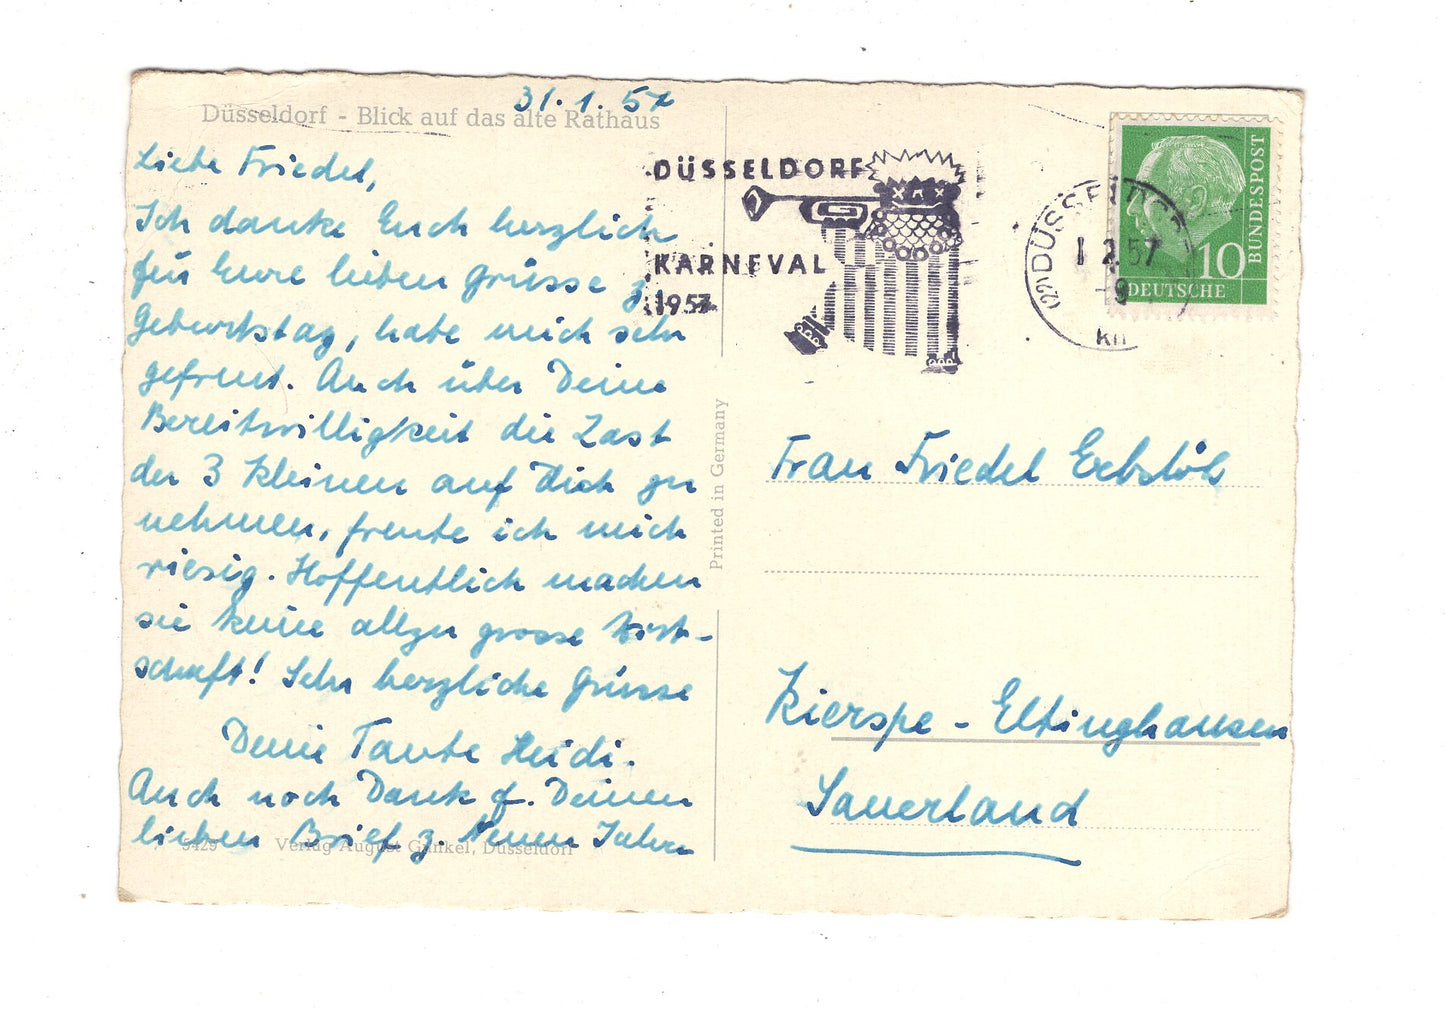 31.1.57
Düsseldorf - Blick auf das alte Rathaus
Liebe Friedel,
Ich danke Euch herzlich
für Eure lieben Grüsse z.
Geburtstag, habe mich sehr
gefreut. Auch über Deine
Bereitwilligkeit die Last
der 3 Kleinen auf Dich zu
nehmen, freute ich mich
riesig. Hoffentlich machen
sie keine allzu grosse Wirt-
schaft! Sehr herzliche Grüsse
Deine Tante Heidi.
Auch noch Dank f. Deinen
lieben Brief z. Neuen Jahre
5429 Verlag August Gunkel, Düsseldorf
Printed in Germany
DÜSSELDORF
KARNEVAL
1957
(22) DÜSSELDORF
1.2.57
-9
km
10
DEUTSCHE
BUNDESPOST
Frau Friedel
Kierspe - Eltinghausen
Sauerland